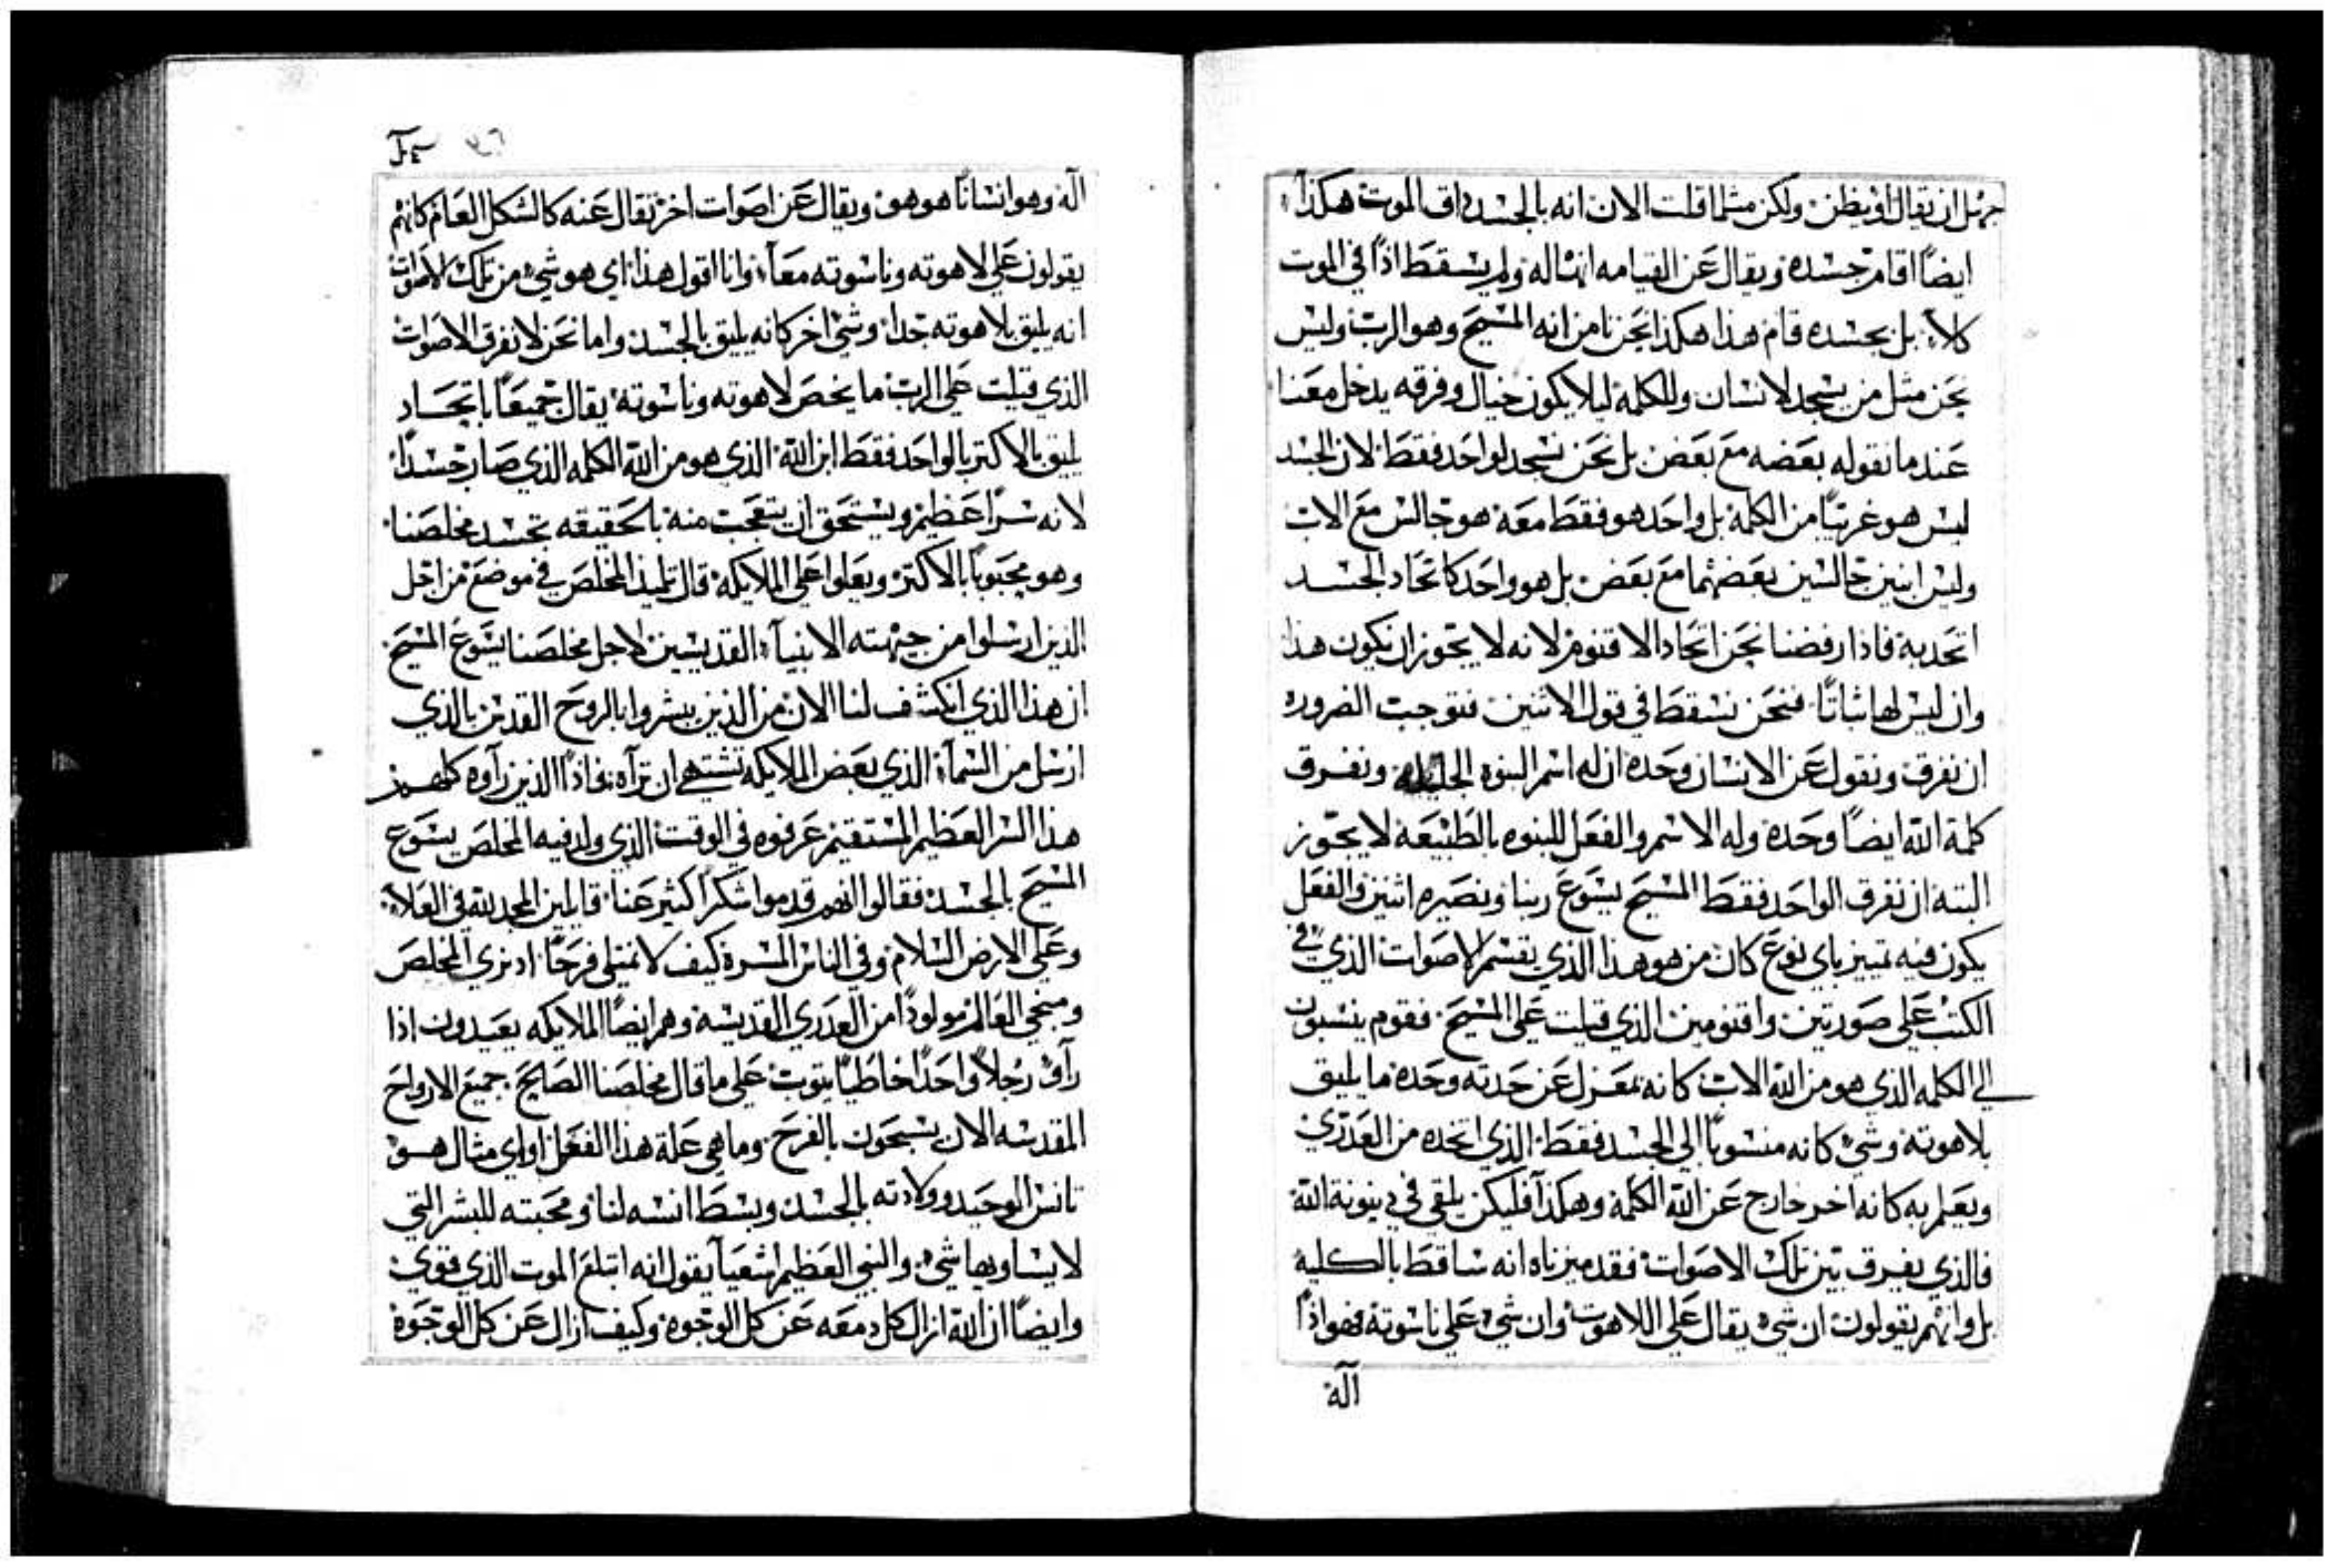 جهل ان يقال او يظن ولكن مثلما قلت الان انه بالجسد ذاق الموت هكذا
ايضاً اقام جسده ويقال عن القيامه انها له ولم يسقط اذاً في الموت
كلا بل بجسده قام هذا هكذا نحن نامن انه المسيح وهو الرب وليس
نحن مثل من يسجد لانسان وللكلمة ليلا يكون خيال وفرقه يدخل معنا
عندما نقوله بعضه مع بعض بل نحن نسجد لواحد فقط لان الجسد
ليس هو غريباً من الكلمة بل واحد هو فقط معه هو جالس مع الاب
وليس ابنين جالسين بعضهما مع بعض بل هو واحد كاتحاد الجسد
اتحد به فاذا رفضنا نحن اتحاد الاقنوم لانه لا يجوز ان يكون هذا
وان ليس لها شاناً فنحن نسقط في قول الاثنين فتوجبت الضروره
ان نفرق ونقول عن الانسان وحده ان له اسم البنوه الجليله ونفرق
كلمة الله ايضاً وحده وله الاسم والفعل للبنوه بالطبيعة لا يجوز
البته ان نفرق الواحد فقط المسيح يسوع ربنا ونصيره اثنين والفعل
يكون فيه تمييز باي نوع كان من هو هذا الذي يقسم الاصوات الذي في
الكتب على صورتين واقنومين الذي قيلت على المسيح فقوم ينسبون
الي الكلمه الذي هو من الله الاب كانه بمعزل عن حدته وحده ما يليق
بلاهوته وشي كانه منسوباً الي الجسد فقط الذي اتخده من العدري
ويعلم به كانه اخر خارج عن الله الكلمة وهكذا فليكن يلقى في دينونة الله
فالذي يفرق بين تلك الاصوات فقد ميزناه انه ساقط بالكلية
بل وانهم يقولون ان شي يقال على اللاهوت وان شي على ناسوته فهو اذاً
آلة
آلة وهو انساناً هو هو ويقال عن اصوات اخر تقال عنه كالشكل العام كانهم
يقولون على لاهوته وناسوته معاً وانا اقول هذا اي هو شي من تلك الاصوات
انه يليق بلاهوته جداً وشي اخر كانه يليق بالجسد واما نحن لا نفرق الاصوات
الذي قيلت على الرب ما يخص لاهوته وناسوته يقال جميعاً باتحاد
يليق بالاكتر بالواحد فقط ابن الله الذي هو من الله الكلمه الذي صار جسداً
لانه سراً عظيم ويستحق ان يتعجب منه بالحقيقه تجسد مخلصنا
وهو محبوباً بالاكتر ويعلوا على الملايكه قال تلميذ المخلص في موضع من اجل
الذين ارسلوا من جهته الانبيآ القديسين لاجل مخلصنا يسوع المسيح
ان هذا الذي انكشف لنا الان من الذين بشروا بالروح القدس بالذي
ارسل من السمآ الذي بعض الملايكه تشتهي ان تراه فاذاً الذين رآوه كلهم
هذا السر العظيم المستقيم عرفوه في الوقت الذي ولد فيه المخلص يسوع
المسيح بالجسد فقالوا انهم قدموا شكراً كثير عنا قايلين المجد لله في العلا
وعلى الارض السلام وفي الناس المسرة كيف لا نمتلي فرحاً اد نري المخلص
ومنجي العالم مولوداً من العدري القديسة وهم ايضاً الملايكه يعيدون اذا
رآوا رجلاً واحداً خاطياً يتوب على ما قال مخلصنا الصالح جميع الارواح
المقدسه الان يسبحون بالفرح وما هي علة هذا الفعل او اي مثال هو
تانس الوحيد وولادته بالجسد وبسط انسه لنا ومحبته للبشر التي
لا يساويها شي والنبي العظيم اشعيآ يقول انه ابتلع الموت الذي قوي
وايضاً ان الله ازال كل دمعه عن كل الوجوه وكيف ازال عن كل الوجوه